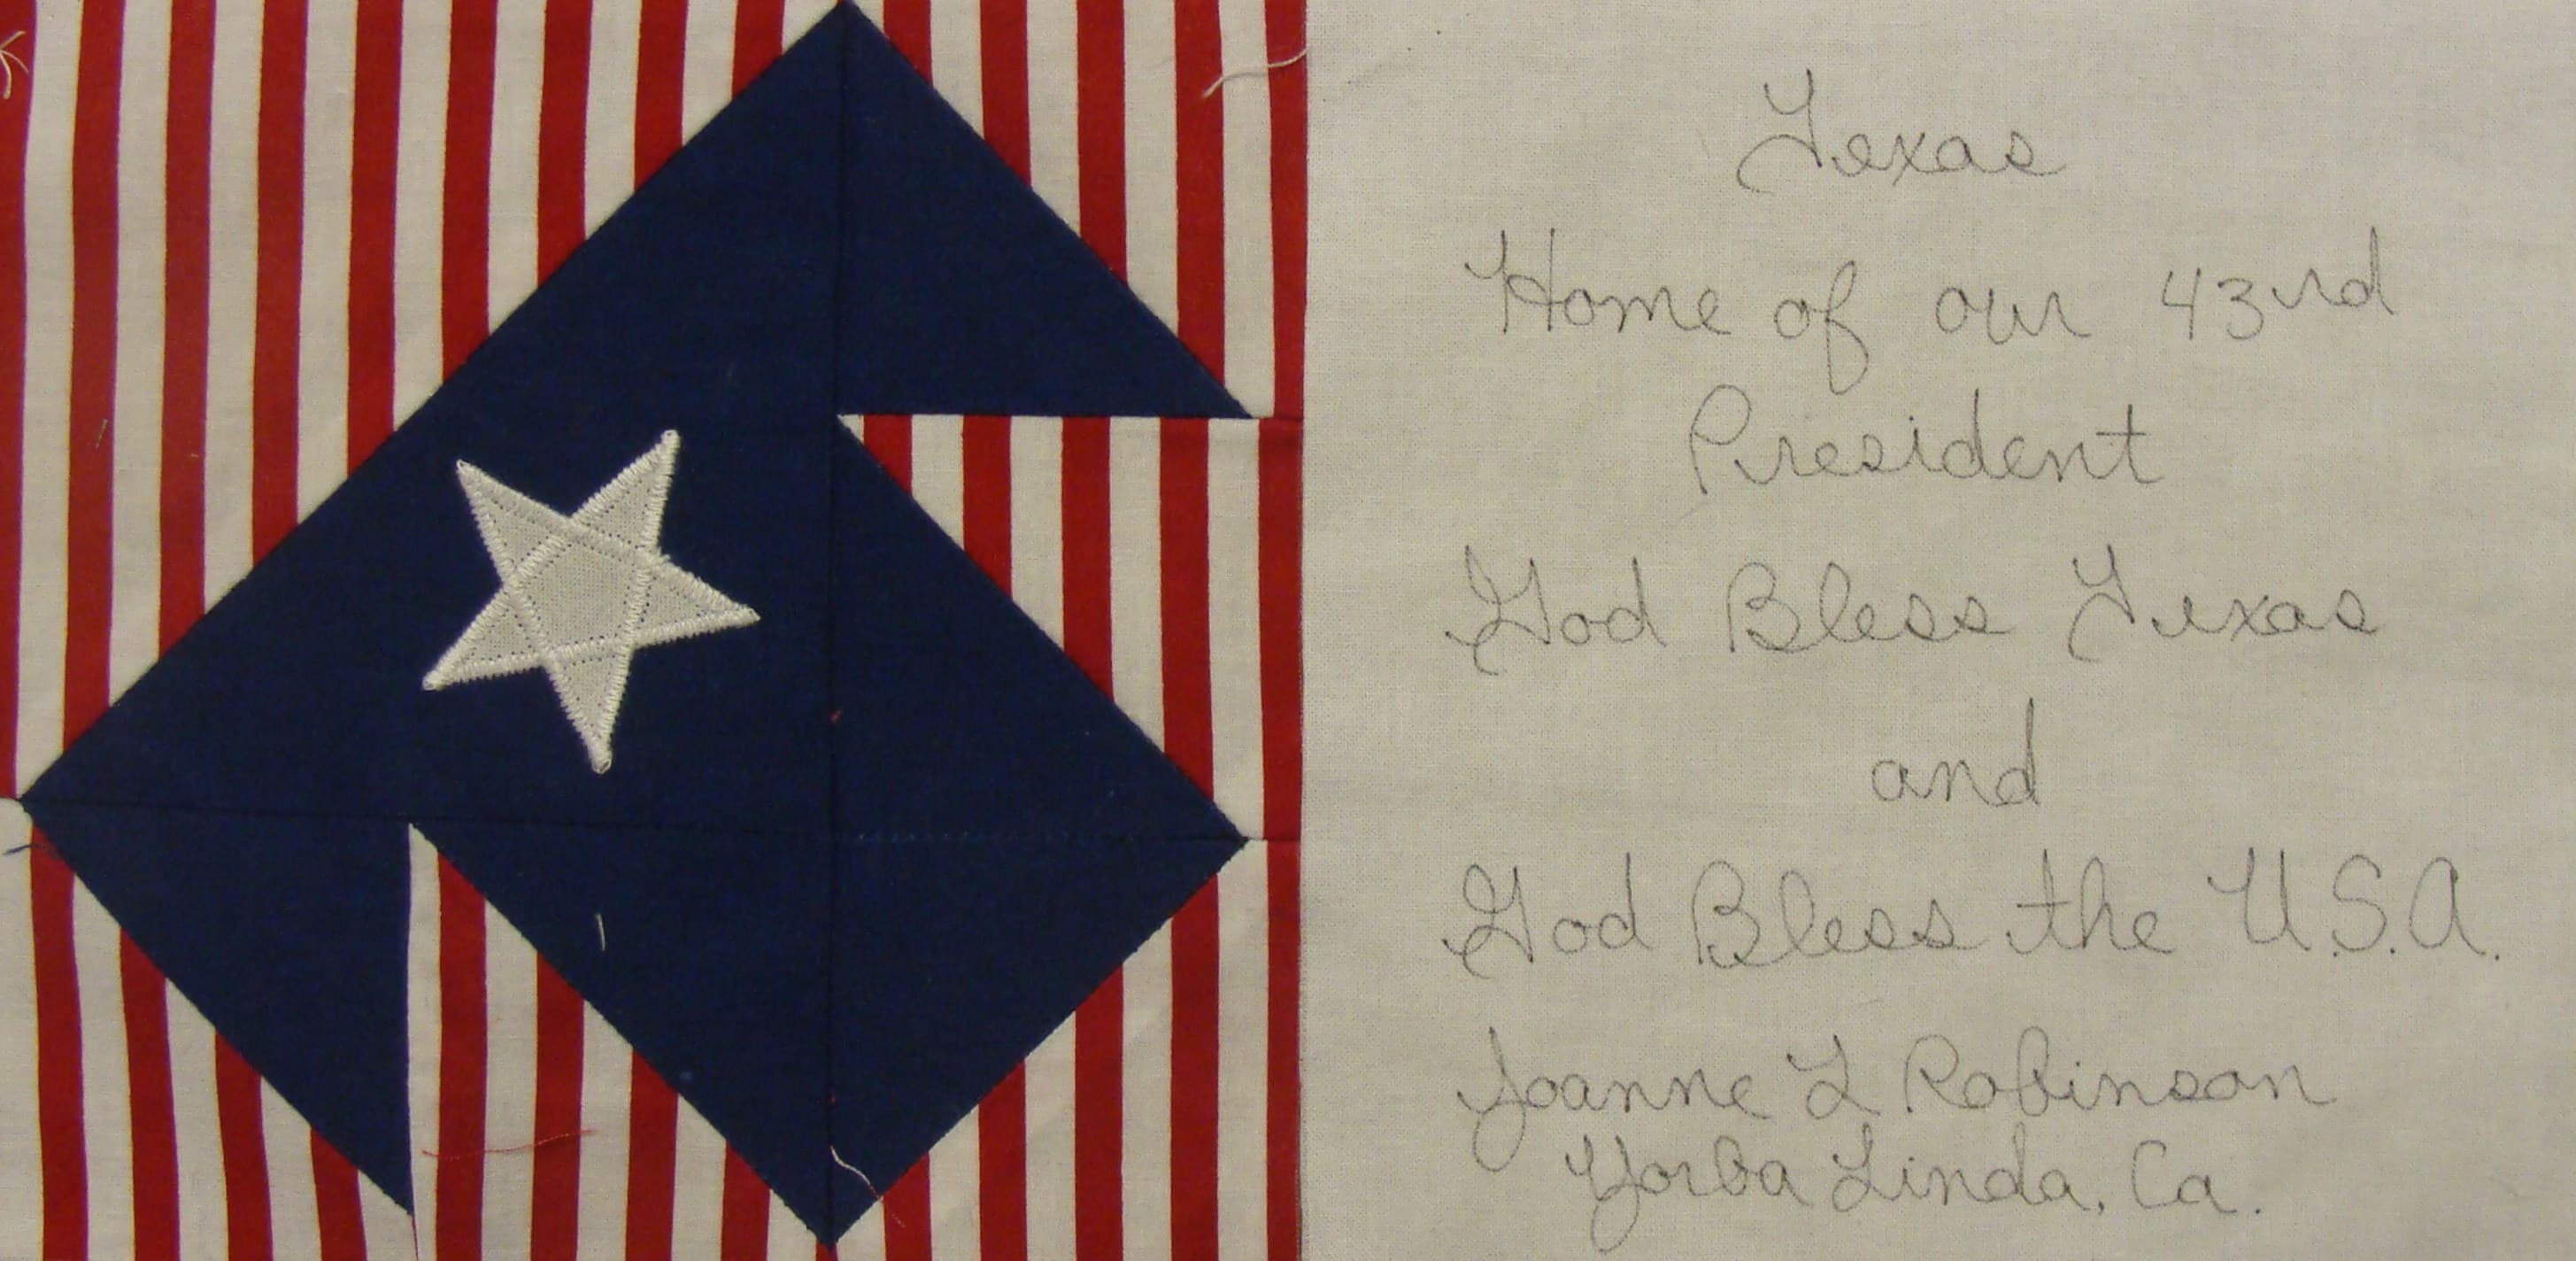 Texas
Home of our 43rd
President
God Bless Texas
and
God Bless the U.S.A.
Joanne L Robinson
Yorba Linda, Ca.